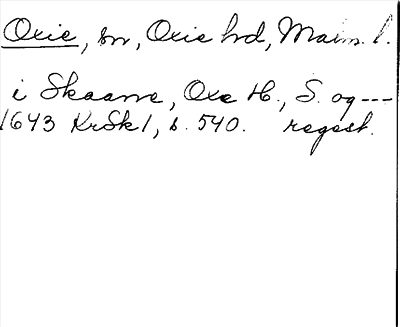 Oxie, sn, Oxie hd, Malm. l.
i Skaane, Oxe H., S. og ---
1643 KrSk1, s. 540. regest.